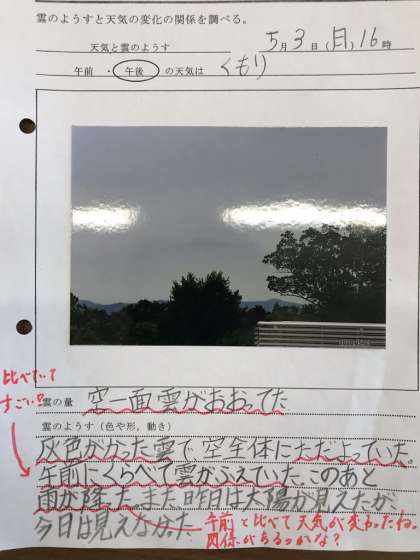 雲のようすと天気の変化の関係を調べる。
天気と雲のようす 5月3日(月)16時
午前・午後の天気は くもり
比べていて
すごい!!
雲の量 空一面雲がおおってた
雲のようす（色や形，動き）
灰色がかった雲で空全体にただよっていた。
午前にくらべて雲がふえていた。このあと
雨が降った。また、昨日は太陽が見えたが、
今日は見えなかった
午前と比べて天気が変わったね。
関係があるのかな?